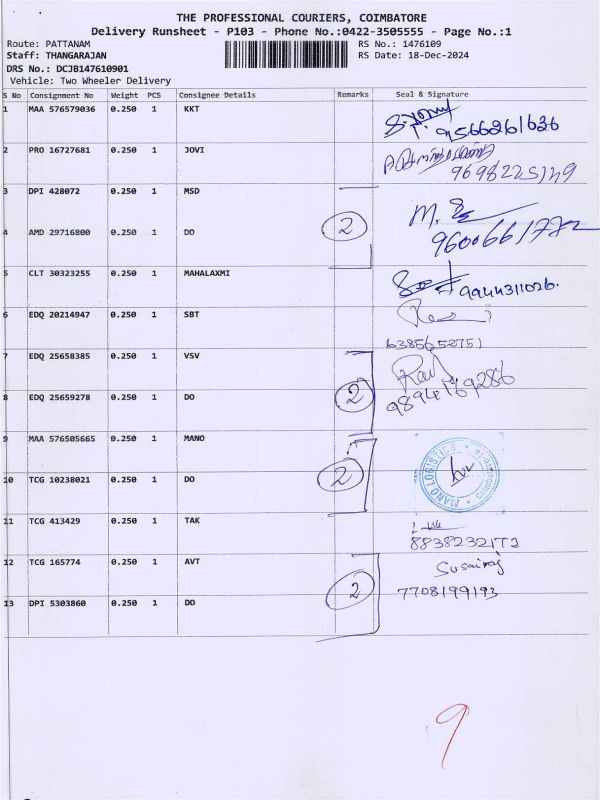 THE PROFESSIONAL COURIERS, COIMBATORE
Delivery Runsheet - P103 - Phone No.:0422-3505555 - Page No.:1
Route: PATTANAM RS No.: 1476109
Staff: THANGARAJAN RS Date: 18-Dec-2024
DRS No.: DCJB147610901
Vehicle: Two Wheeler Delivery
S No Consignment No Weight PCS Consignee Details Remarks Seal & Signature
1 MAA 576579036 0.250 1 KKT
9566261636
2 PRO 16727681 0.250 1 JOVI
9698225149
3 DPI 428072 0.250 1 MSD
4 AMD 29716800 0.250 1 DO 2
9600661772
5 CLT 30323255 0.250 1 MAHALAXMI
9944311026.
6 EDQ 20214947 0.250 1 SBT
6385652751
7 EDQ 25658385 0.250 1 VSV
8 EDQ 25659278 0.250 1 DO 2
9894769286
9 MAA 576505665 0.250 1 MANO
MANO LOGISTICS
10 TCG 10238021 0.250 1 DO 2
11 TCG 413429 0.250 1 TAK
8838232172
12 TCG 165774 0.250 1 AVT Susairaj
7708199193
13 DPI 5303860 0.250 1 DO 2
9